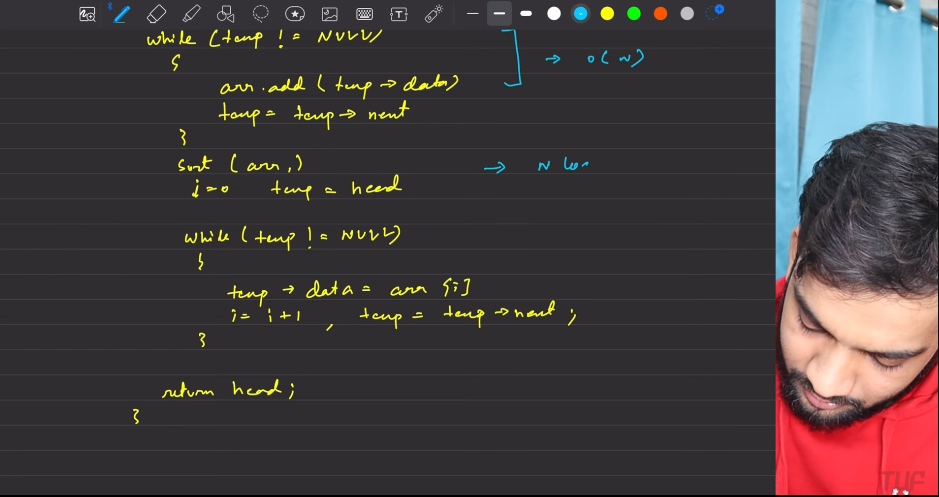 while (temp != NULL)
{
→ O(N)
arr.add (temp → data)
temp = temp → next
}
sort (arr,)
→ N log
i=0 temp = head
while (temp != NULL)
{
temp → data = arr [i]
i = i + 1 , temp = temp → next ;
}
return head ;
}
TUF